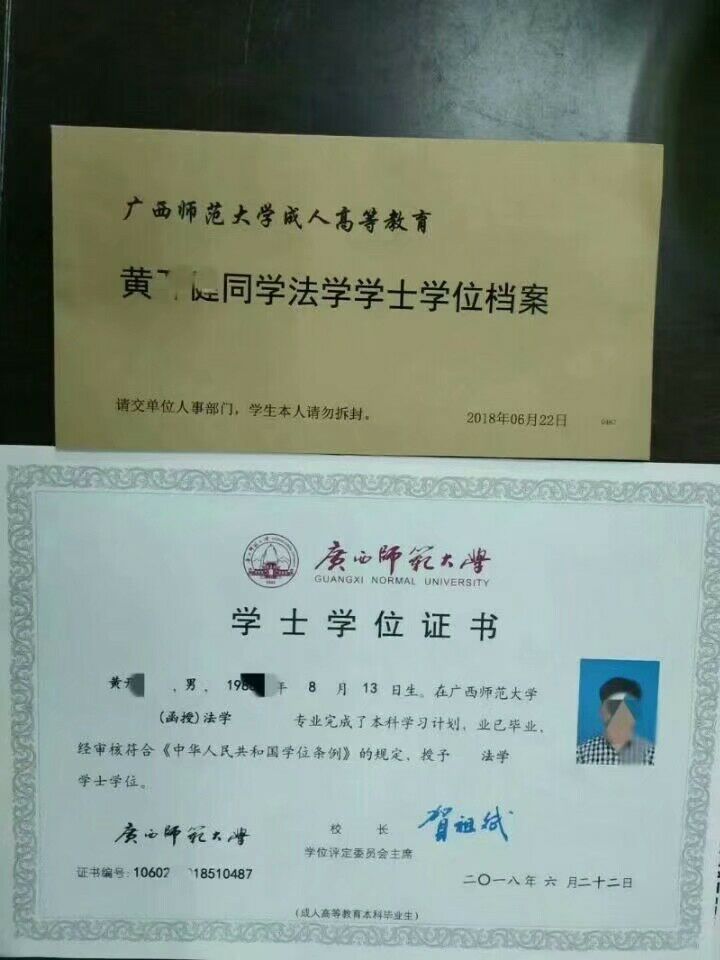 广西师范大学成人高等教育
黄 健同学法学学士学位档案
请交单位人事部门，学生本人请勿拆封。
2018年06月22日 0487
廣西師範大學
GUANGXI NORMAL UNIVERSITY
学士学位证书
黄 ，男，198 年 8 月 13 日生。在广西师范大学
(函授)法学 专业完成了本科学习计划，业已毕业，
经审核符合《中华人民共和国学位条例》的规定，授予 法学
学士学位。
廣西師範大學
校 长 贺祖斌
学位评定委员会主席
证书编号：10602 018510487
二〇一八年 六 月二十二日
(成人高等教育本科毕业生)